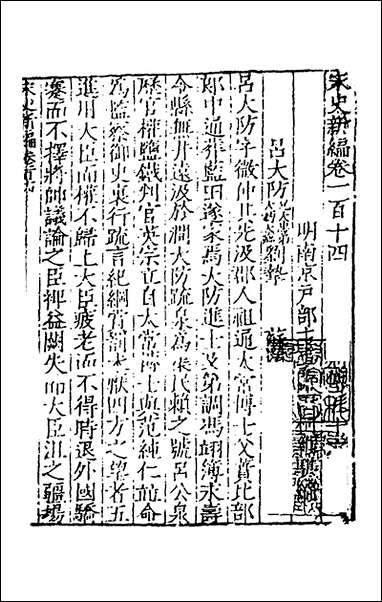 宋史新編卷一百十四
明南京戶部主
呂大防 兄大忠弟大鈞大臨 劉摯 蘇頌
呂大防字微仲其先汲郡人祖通太常博士父蕡比部
郎中通葬藍田遂家焉大防進士及第調馮翊簿永壽
令縣無井遠汲於澗大防疏泉爲渠民賴之號呂公泉
歷官權鹽鐵判官英宗立自太常博士與范純仁並命
爲監察御史裏行疏言紀綱賞罰未厭四方之望者五
進用大臣而權不歸上大臣疲老而不得時退外國驕
蹇而不擇將帥議論之臣裨益闕失而大臣沮之疆埸
宋史新編卷